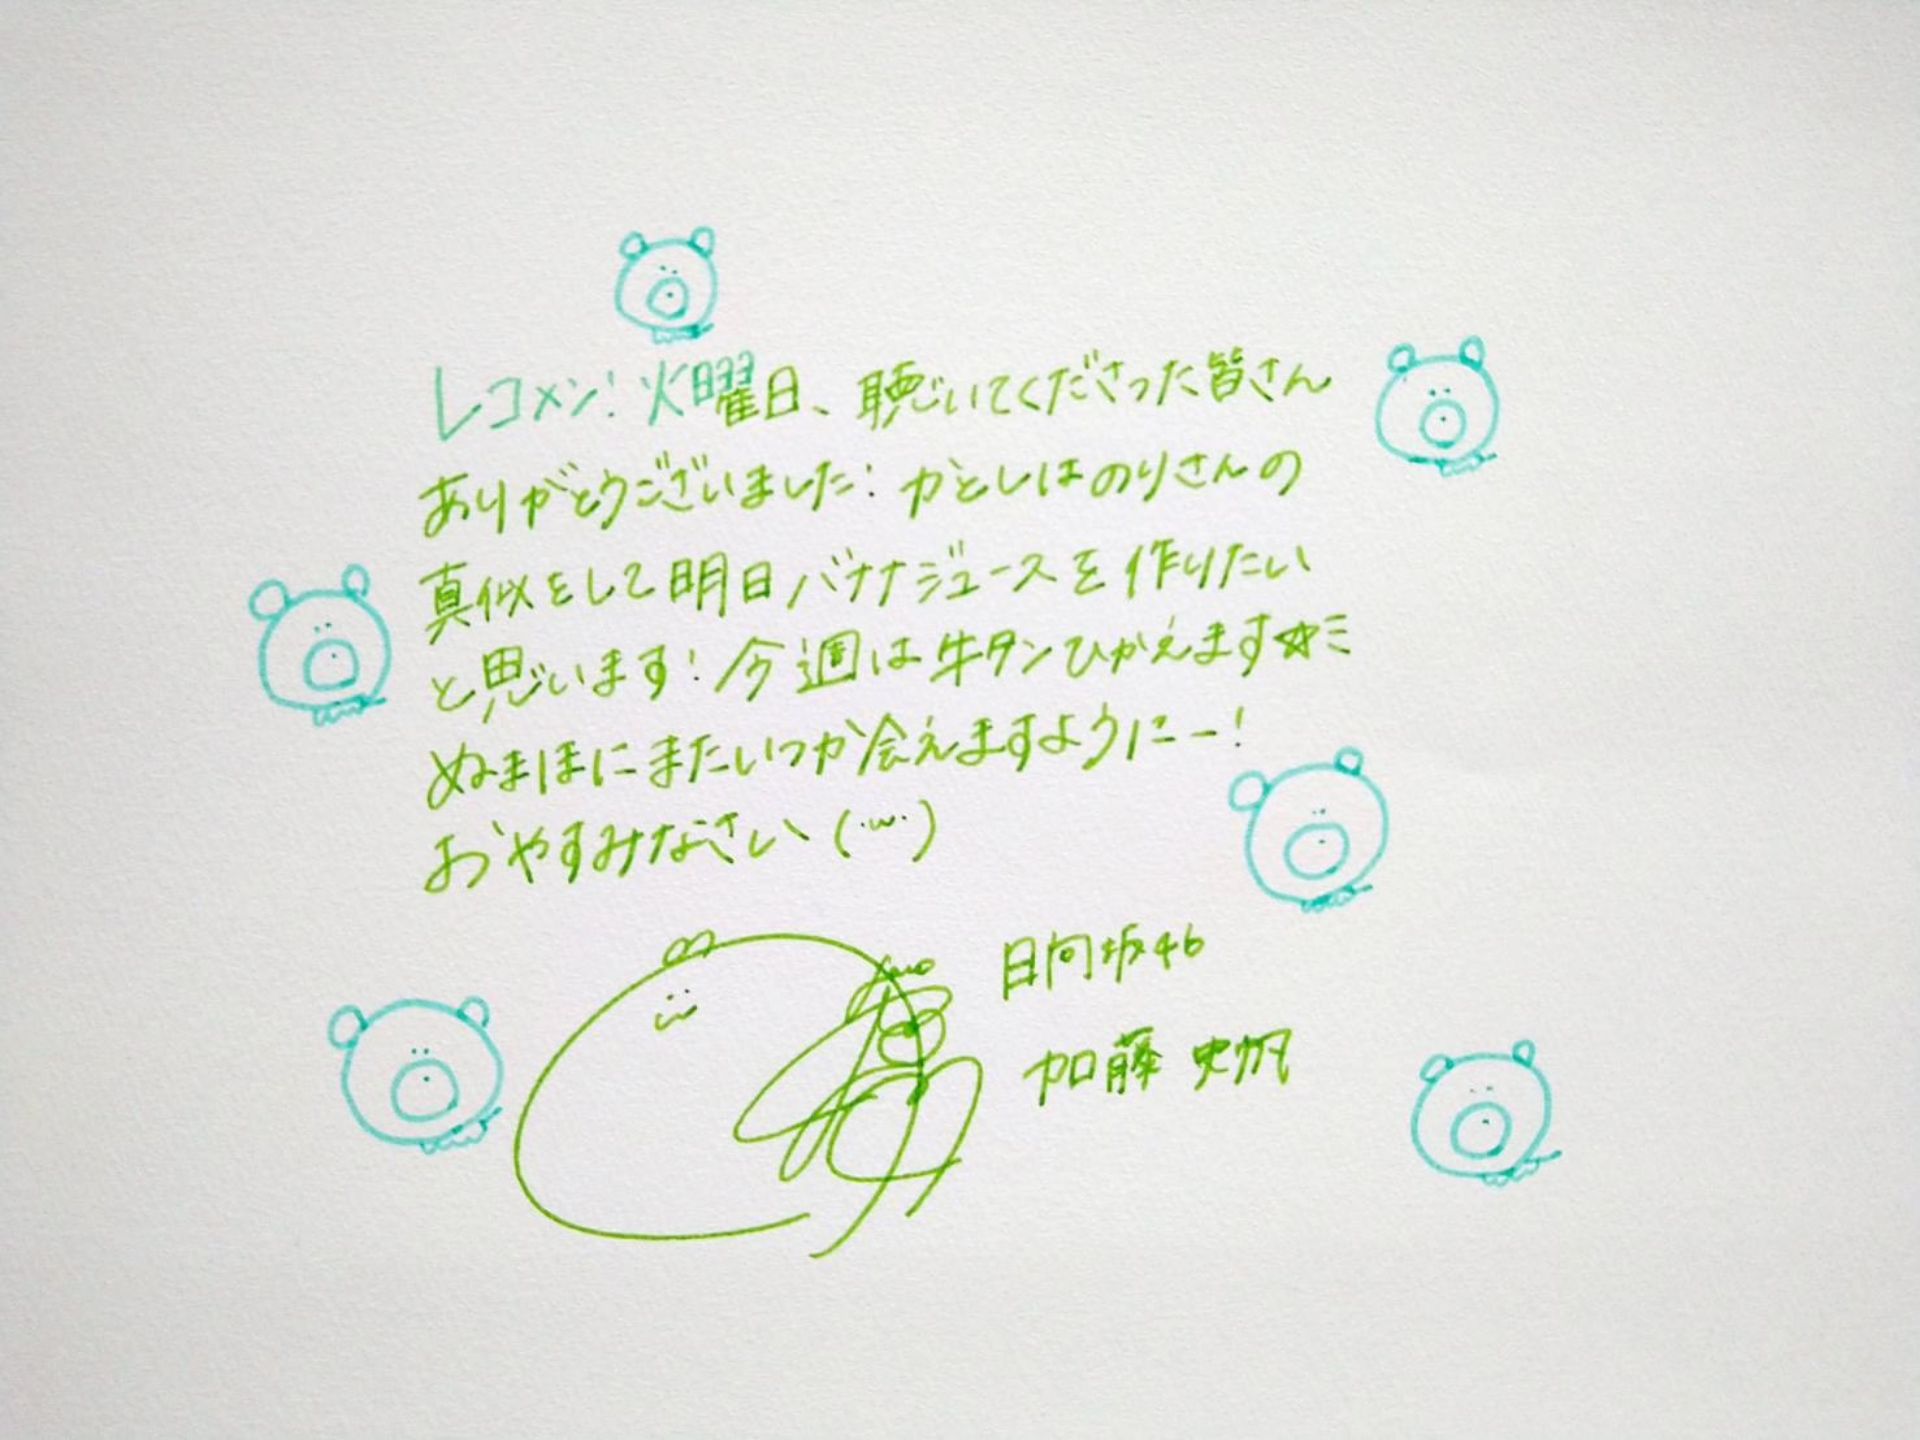 レコメン!火曜日、聴いてくださった皆さん
ありがとうございました!かとしはのりさんの
真似をして明日バナナジュースを作りたい
と思います!今週は牛タンひかえます☆ミ
ぬまほにまたいつか会えますようにー!
おやすみなさい(·w·)
日向坂46
加藤 史帆